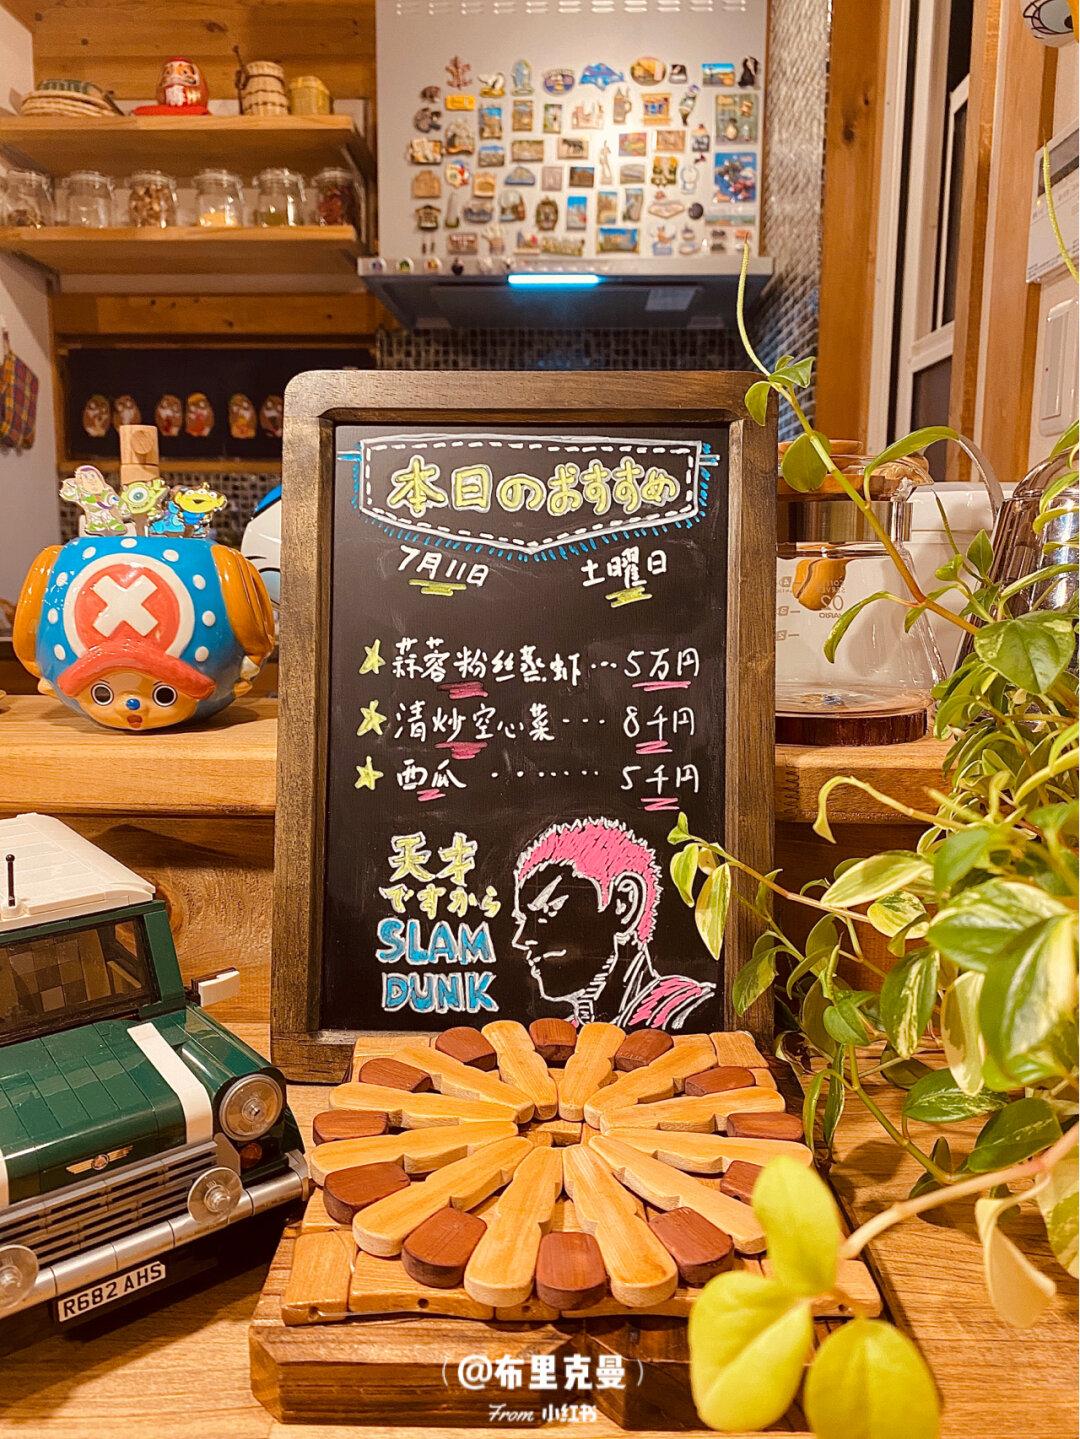 本日のおすすめ
7月11日 土曜日
蒜蓉粉丝蒸虾…5万円
清炒空心菜---8千円
西瓜.......5千円
天才
ですから
SLAM
DUNK
R682 AHS
@布里克曼
From 小红书